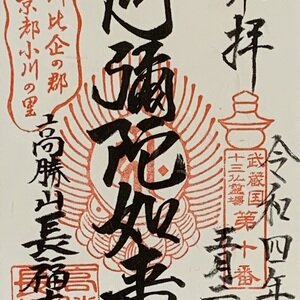 拝
令和四年
五月
武蔵国
十三仏霊場
第十番
阿彌陀如来
比企の郡
京都小川の里
高勝山長福